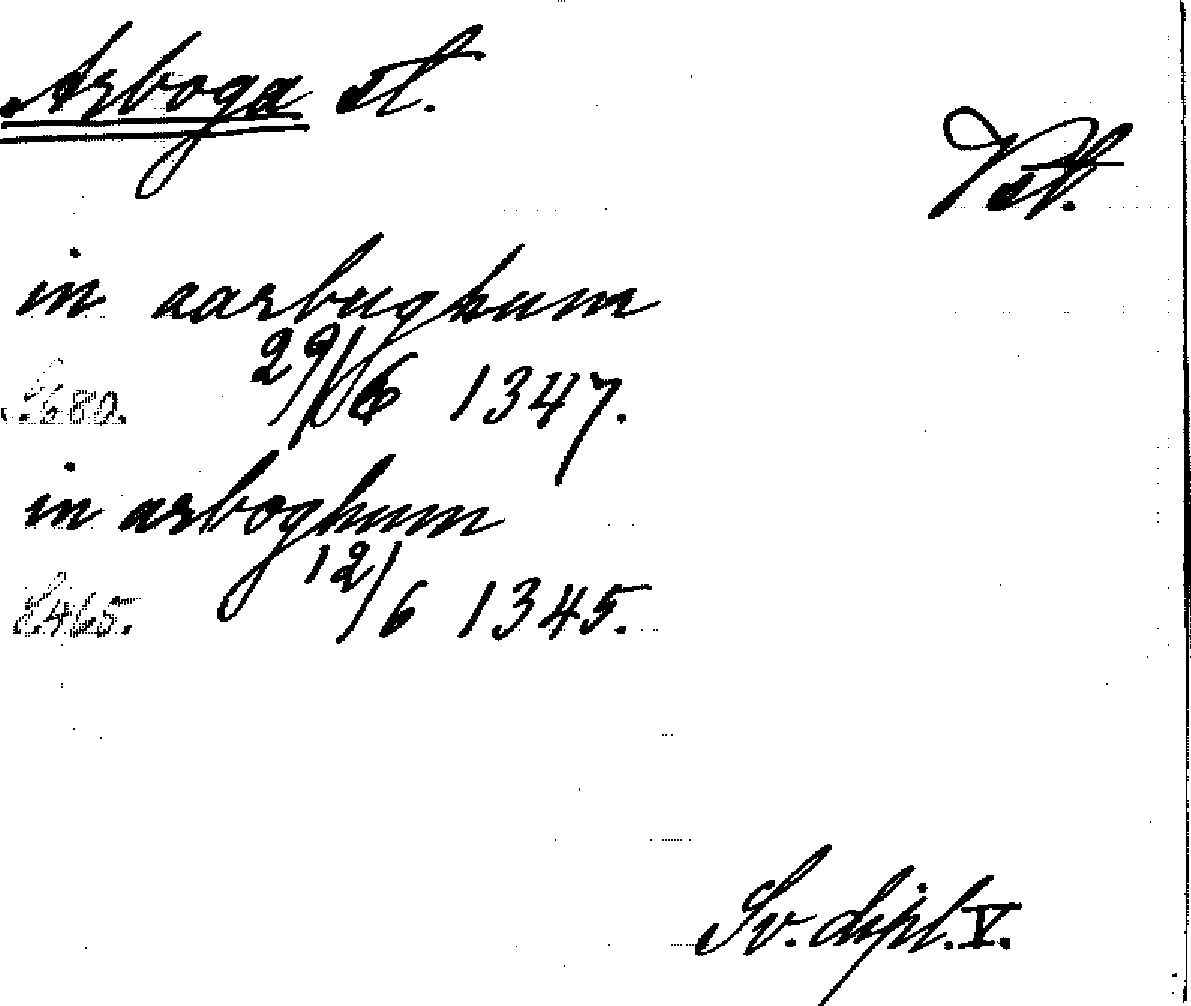 Arboga st.
Vstl.
in aarbughum
S. 680. 29/6 1347.
in arboghum
S. 465. 12/6 1345.
Sv. dipl. V.